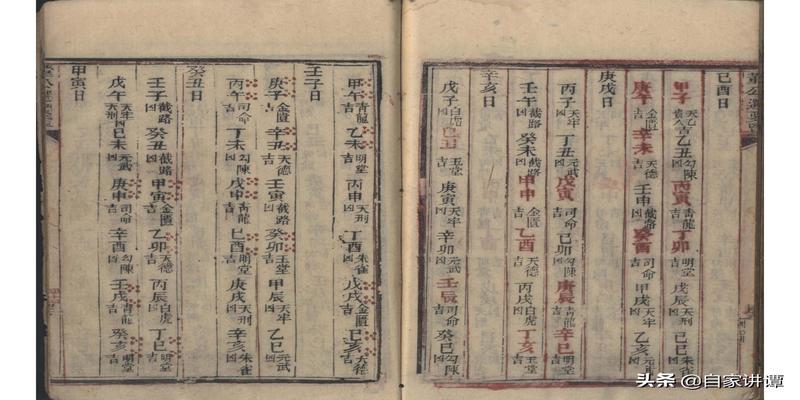 己酉日
甲子天乙貴人吉乙丑勾陳凶丙寅青龍吉丁卯明堂吉戊辰天刑凶己巳朱雀凶
庚午金匱吉辛未天德吉壬申截路凶癸酉司命吉甲戌天牢凶乙亥元武凶
庚戌日
丙子天牢凶丁丑元武凶戊寅司命吉己卯勾陳凶庚辰青龍吉辛巳明堂吉
壬午截路凶癸未截路凶甲申金匱吉乙酉天德吉丙戌白虎凶丁亥玉堂吉
辛亥日
戊子白虎凶己丑玉堂吉庚寅天牢凶辛卯元武凶壬辰司命吉癸巳勾陳凶
甲午青龍吉乙未明堂吉丙申天刑凶丁酉朱雀凶戊戌金匱吉己亥天德吉
壬子日
庚子金匱吉辛丑天德吉壬寅截路凶癸卯玉堂吉甲辰天牢凶乙巳元武凶
丙午司命吉丁未勾陳凶戊申青龍吉己酉明堂吉庚戌天刑凶辛亥朱雀凶
癸丑日
壬子截路凶癸丑截路凶甲寅金匱吉乙卯天德吉丙辰白虎凶丁巳吉
戊午天牢凶己未元武凶庚申司命吉辛酉勾陳凶壬戌青龍吉癸亥明堂吉
甲寅日
头条 @自家讲谭